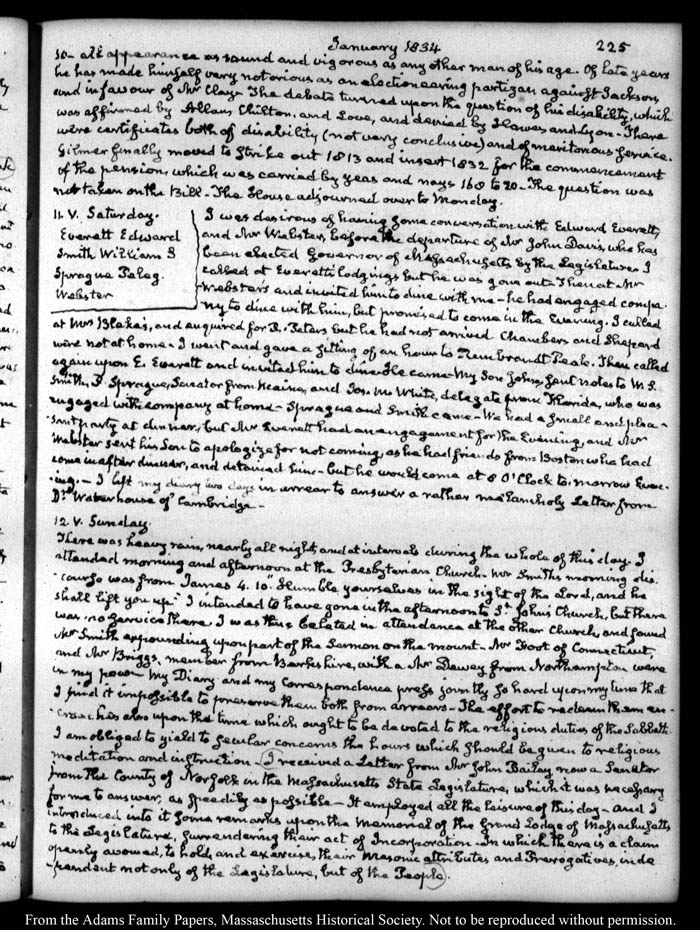 January 1834 225
to all appearance as sound and vigorous as any other man of his age. Of late years
he has made himself very notorious as an electioneering partizan against Jackson,
and in favour of Mr Clay. The debate turned upon the question of his disability, which
was affirmed by Allan, Chilton, and Love, and denied by Hawes and Lyon. There
were certificates both of disability (not very conclusive) and of meritorious service.
Gilmer finally moved to strike out 1813 and insert 1832 for the commencement
of the pension, which was carried by yeas and nays 168 to 20. The question was
not taken on the Bill. The House adjourned over to Monday.
11. V. Saturday.
Everett Edward
Smith William S
Sprague Peleg.
Webster
I was desirous of having some conversation with Edward Everett,
and Mr Webster, before the departure of Mr John Davis, who has
been elected Governor of Massachusetts by the Legislature. I
called at Everett's lodgings but he was gone out. Then at Mr
Webster's and invited him to dine with me - he had engaged compa-
ny to dine with him, but promised to come in the Evening. I called
at Mrs Blake's, and enquired for B. Peters but he had not arrived. Chambers and Shepard
were not at home. I went and gave a sitting of an hour to Rembrandt Peale. Then called
again upon E. Everett and invited him to dine. He came. My Son John, sent notes to W. S.
Smith, P. Sprague, Senator from Maine, and Jos. M. White, delegate from Florida, who was
engaged with company at home - Sprague and Smith came - We had a small and plea-
sant party at dinner, but Mr Everett had an engagement for the Evening, and Mr
Webster sent his Son to apologize for not coming, as he had friends from Boston who had
come in after dinner, and detained him - but he would come at 8 O'Clock to-morrow Even-
ing. - I left my diary two days in arrear to answer a rather melancholy Letter from
Dr Waterhouse of Cambridge -
12. V. Sunday.
There was heavy rain, nearly all night, and at intervals during the whole of this day. I
attended morning and afternoon at the Presbyterian Church. Mr Smith's morning dis-
course was from James 4. 10. "Humble yourselves in the sight of the Lord, and he
shall lift you up" I intended to have gone in the afternoon to St John's Church, but there
was no service there. I was thus belated in attendance at the other Church, and found
Mr Smith expounding upon part of the Sermon on the mount. Mr Foot of Connecticut,
and Mr Briggs, member from Berkshire, with a Mr Dewey from Northampton were
in my pew. My Diary and my correspondence press jointly so hard upon my time that
I find it impossible to preserve them both from arrears - The effort to redeem them en-
croaches also upon the time which ought to be devoted to the religious duties of the Sabbath.
I am obliged to yield to secular concerns the hours which should be given to religious
meditation and instruction - I received a Letter from Mr John Bailey now a Senator
from the County of Norfolk in the Massachusetts State Legislature, which it was necessary
for me to answer, as speedily as possible - It employed all the leisure of this day - and I
introduced into it some remarks upon the Memorial of the Grand Lodge of Massachusetts
to the Legislature, surrendering their act of Incorporation - In which there is a claim
openly avowed, to hold, and exercise, their Masonic attributes and Prerogatives, inde-
pendent not only of the Legislature, but of the People.
From the Adams Family Papers, Massachusetts Historical Society. Not to be reproduced without permission.